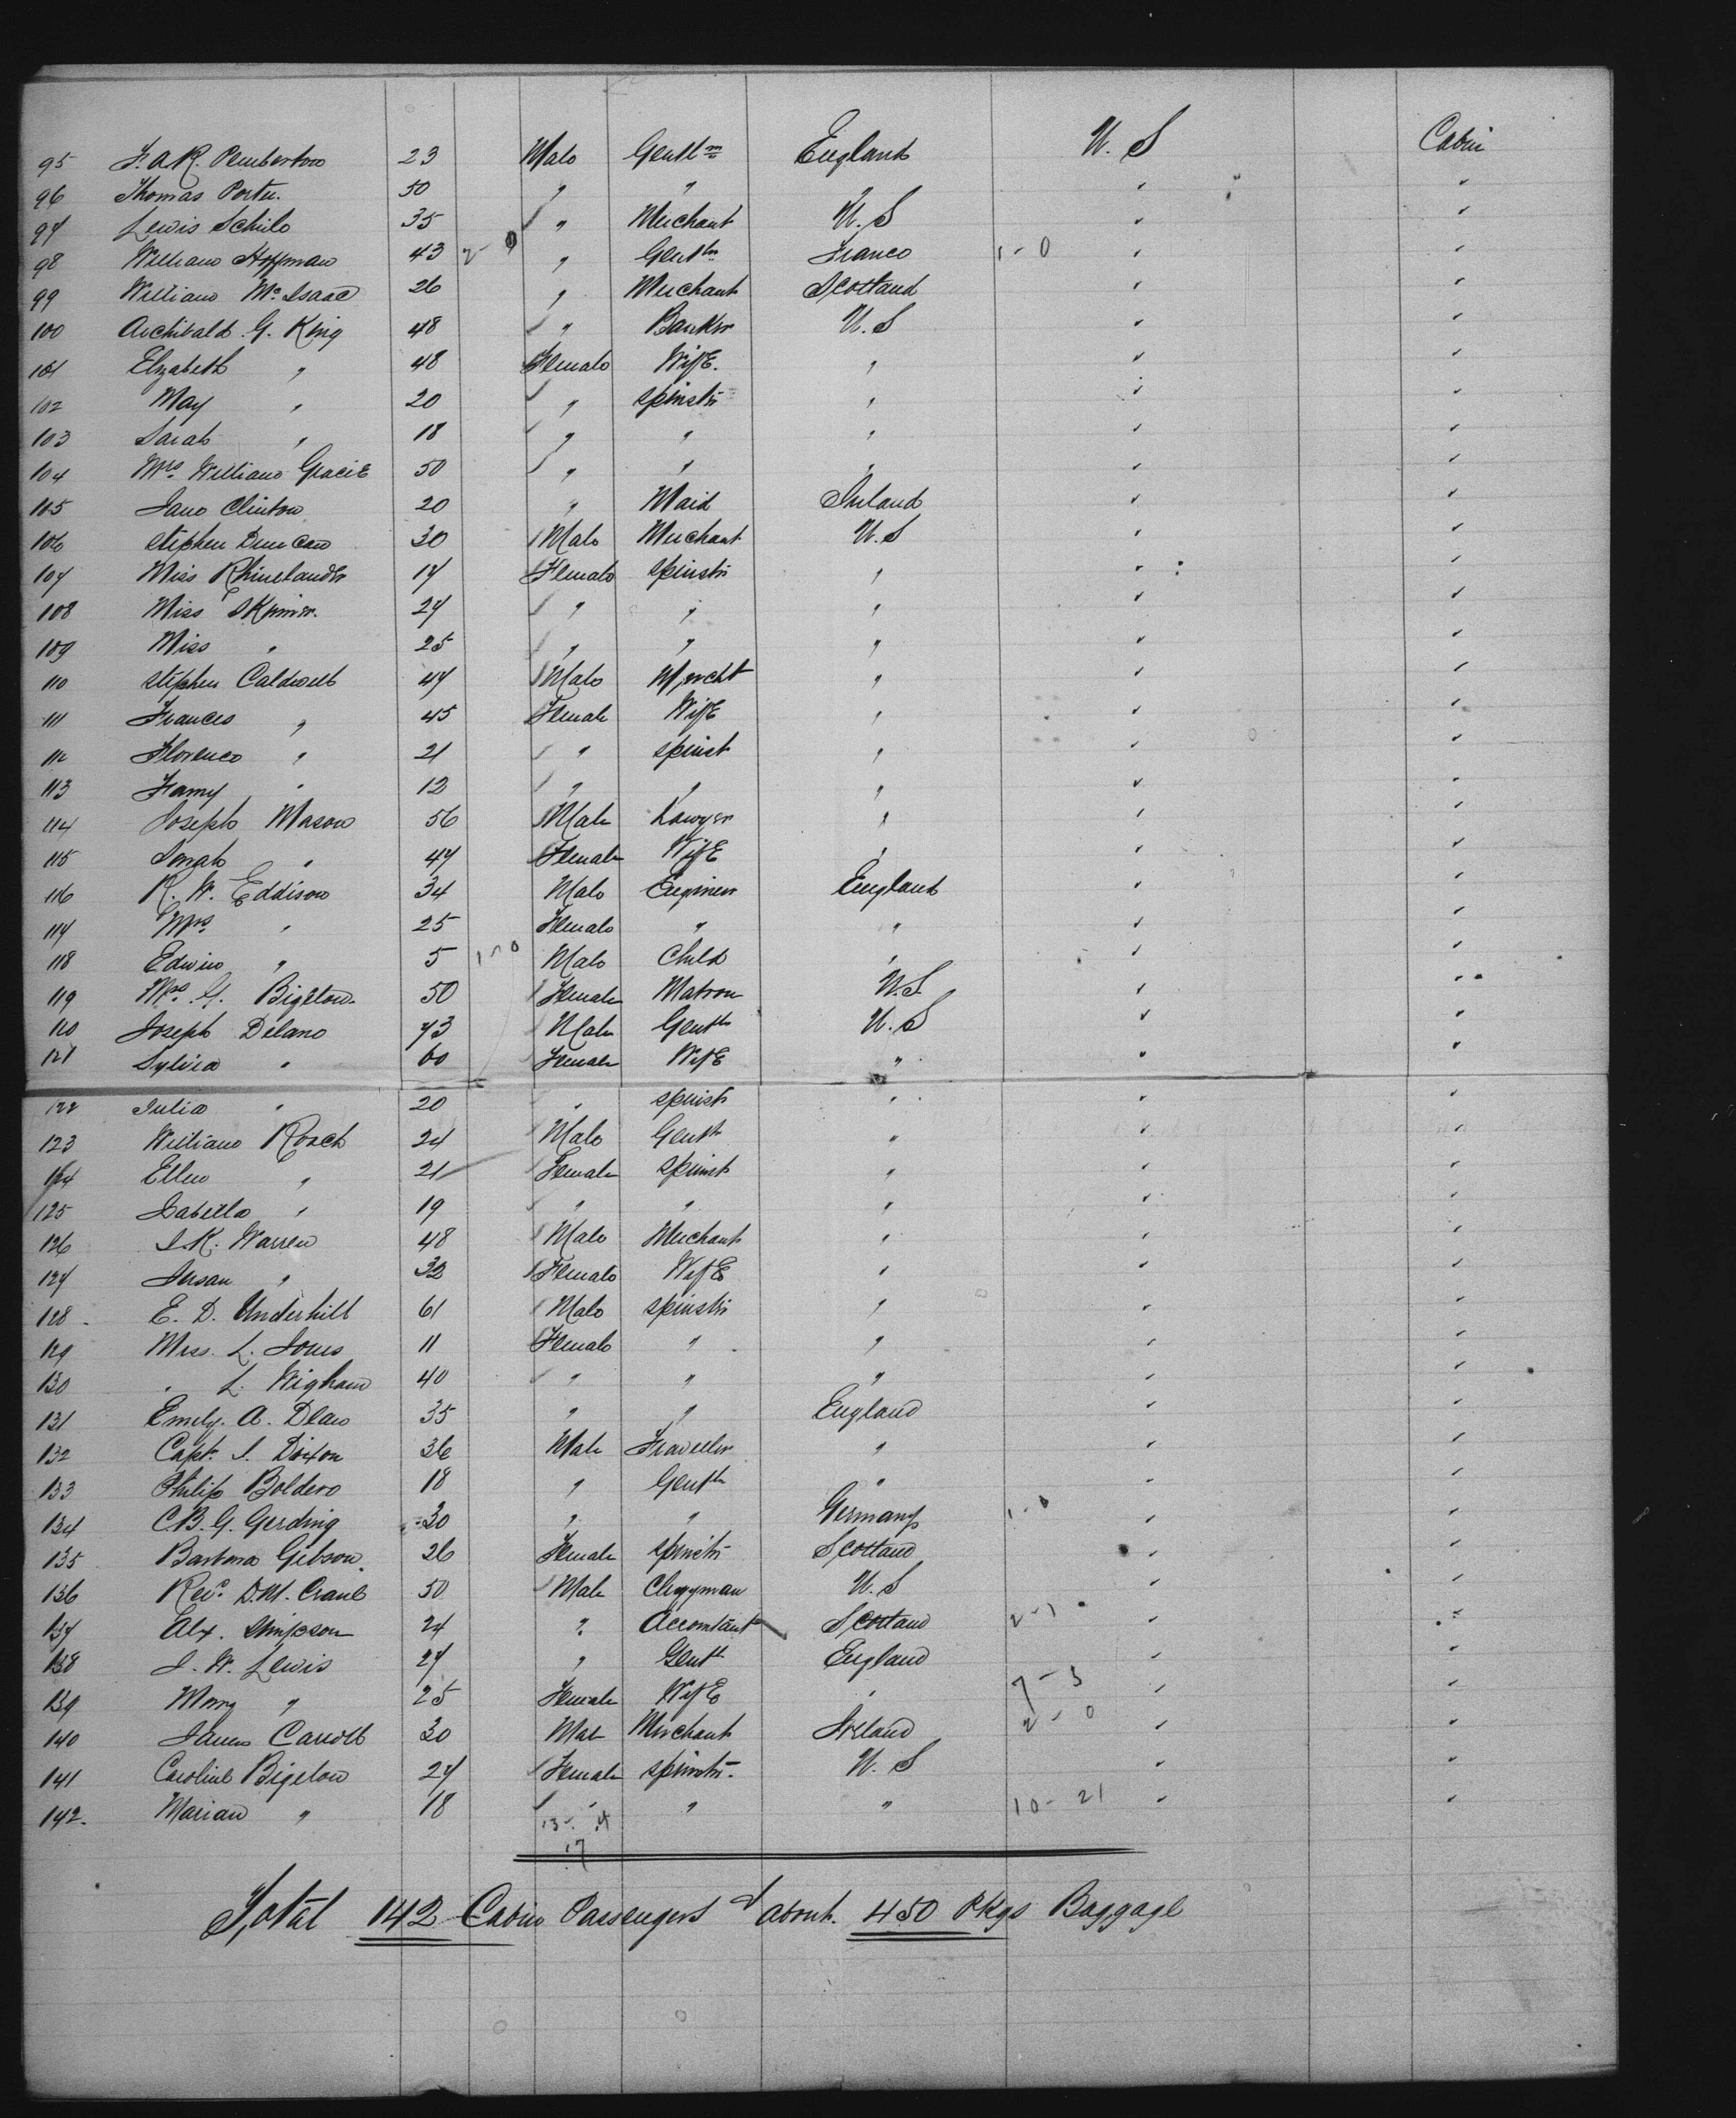 95 F. A. R. Pemberton 23 Male Gentlm England U. S Cabin
96 Thomas Porter. 50 " " " " "
97 Lewis Schilo 35 " Merchant U. S " "
98 William Hoffman 43 2 - 0 " Gentlm France 1 - 0 " "
99 William Mc Isaac 26 " Merchant Scotland " "
100 Archibald. G. King 48 " Banker U. S " "
101 Elizabeth " 48 Female Wife. " " "
102 May " 20 " Spinstr " " "
103 Sarah " 18 " " " " "
104 Mrs William Gracie 50 " " " " "
105 Jane Clinton 20 " Maid Ireland " "
106 Stephen Duncan 30 Male Merchant U. S " "
107 Miss Rhinelander 17 Female Spinstr " " "
108 Miss Skinner. 27 " " " " "
109 Miss " 25 " " " " "
110 Stephen Caldwell 47 Male Mercht " " "
111 Frances " 45 Female Wife " " "
112 Florence " 21 " Spinst " " "
113 Fanny " 12 " " " " "
114 Joseph Mason 56 Male Lawyer " " "
115 Sarah " 47 Female Wife " " "
116 R. W. Eddison 34 Male Engineer England " "
117 Mrs " 25 Female " " " "
118 Edwin " 5 1 - 0 Male Child " " "
119 Mrs. G. Bigelow 50 Female Matron U. S. " "
120 Joseph Delano 73 Male Gentln U. S " "
121 Sylvia " 60 Female Wife " " "
122 Julia " 20 " Spinstr " " "
123 William Roach 24 Male Gentln " " "
124 Ellen " 21 Female Spinst " " "
125 Isabella " 19 " " " " "
126 J. K. Warren 48 Male Merchant " " "
127 Susan " 32 Female Wife " " "
128 E. D. Underhill 61 Male Spinstr " " "
129 Miss. L. Jones 11 Female " " " "
130 " L. Wigham 40 " " " " "
131 Emely. A. 35 " " England " "
132 Capt. J. Dixon 36 Male Traveller " " "
133 Philip Boldero 18 " Gentln " " "
134 C. B. G. Gerding 30 " " Germany 1 - 0 " "
135 Barbara Gibson 26 Female Spinstr Scotland " "
136 Revd. D. M. Crane 50 Male Clergyman U. S " "
137 Alx. Simpson 24 " Accountant Scotland 2 - 1 " "
138 J. W. Lewis 27 " Gentln England " "
139 Mary " 25 Female Wife " 7 - 3 " "
140 James Carroll 30 Male Merchant Ireland 2 - 0 " "
141 Caroline Bigelow 27 Female Spinstr. U. S " "
142. Marian " 18 " " " 10 - 21 " "
13 - 4
17
Total 142 Cabin Passengers & about. 450 Pkgs Baggage